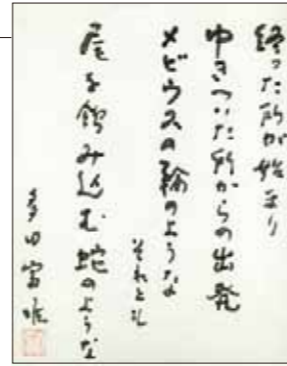 終った所が始まり
ゆきついた所からの出発
メビウスの輪のような
それとも
尾を飲み込む蛇のような
多田富雄